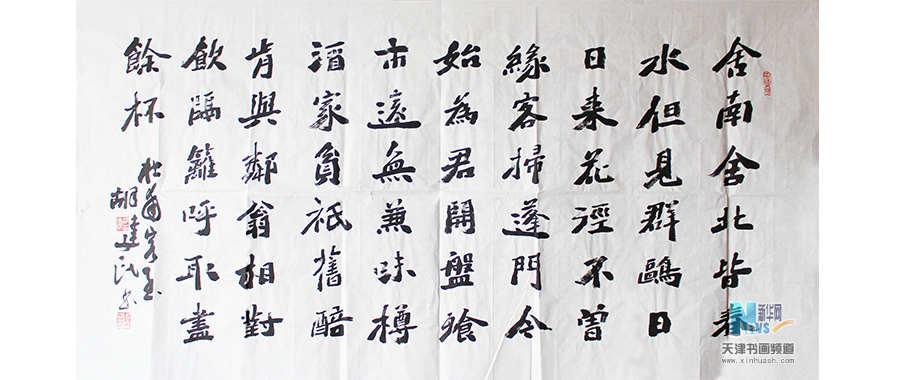 舍南舍北皆春
水但見群鷗日
日来花涇不曾
緣客掃蓬門今
始為君開盤飧
市遠無兼味樽
酒家貧祇舊醅
肯與鄰翁相對
飲隔籬呼取盡
餘杯
杜甫客至
胡建民书
新华网
NEWS
天津书画频道
www.xinhuash.com